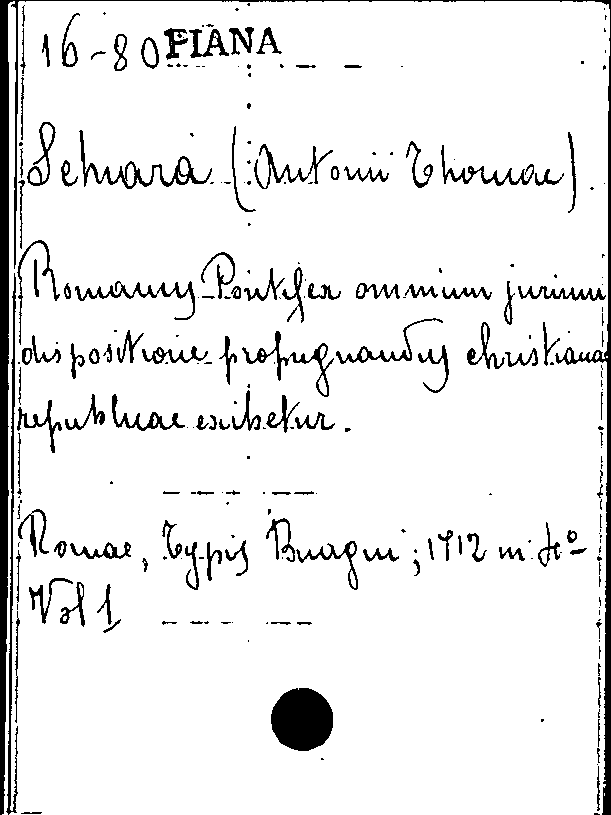 16-80 PIANA
Schiara (Antonii Thomae).
Romanus Pontifex omnium jurium
dispositione propugnandus christianae
republicae exibetur.
Romae, Typis Buagni; 1712 in 4º
Vol 1